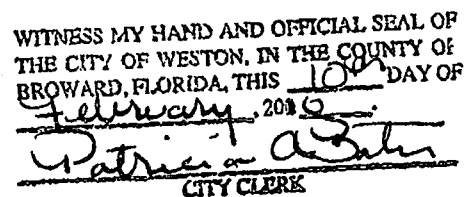 WITNESS MY HAND AND OFFICIAL SEAL OF
THE CITY OF WESTON, IN THE COUNTY OF
BROWARD, FLORIDA, THIS 10th DAY OF
February, 2016.
Patricia A. Bates
CITY CLERK